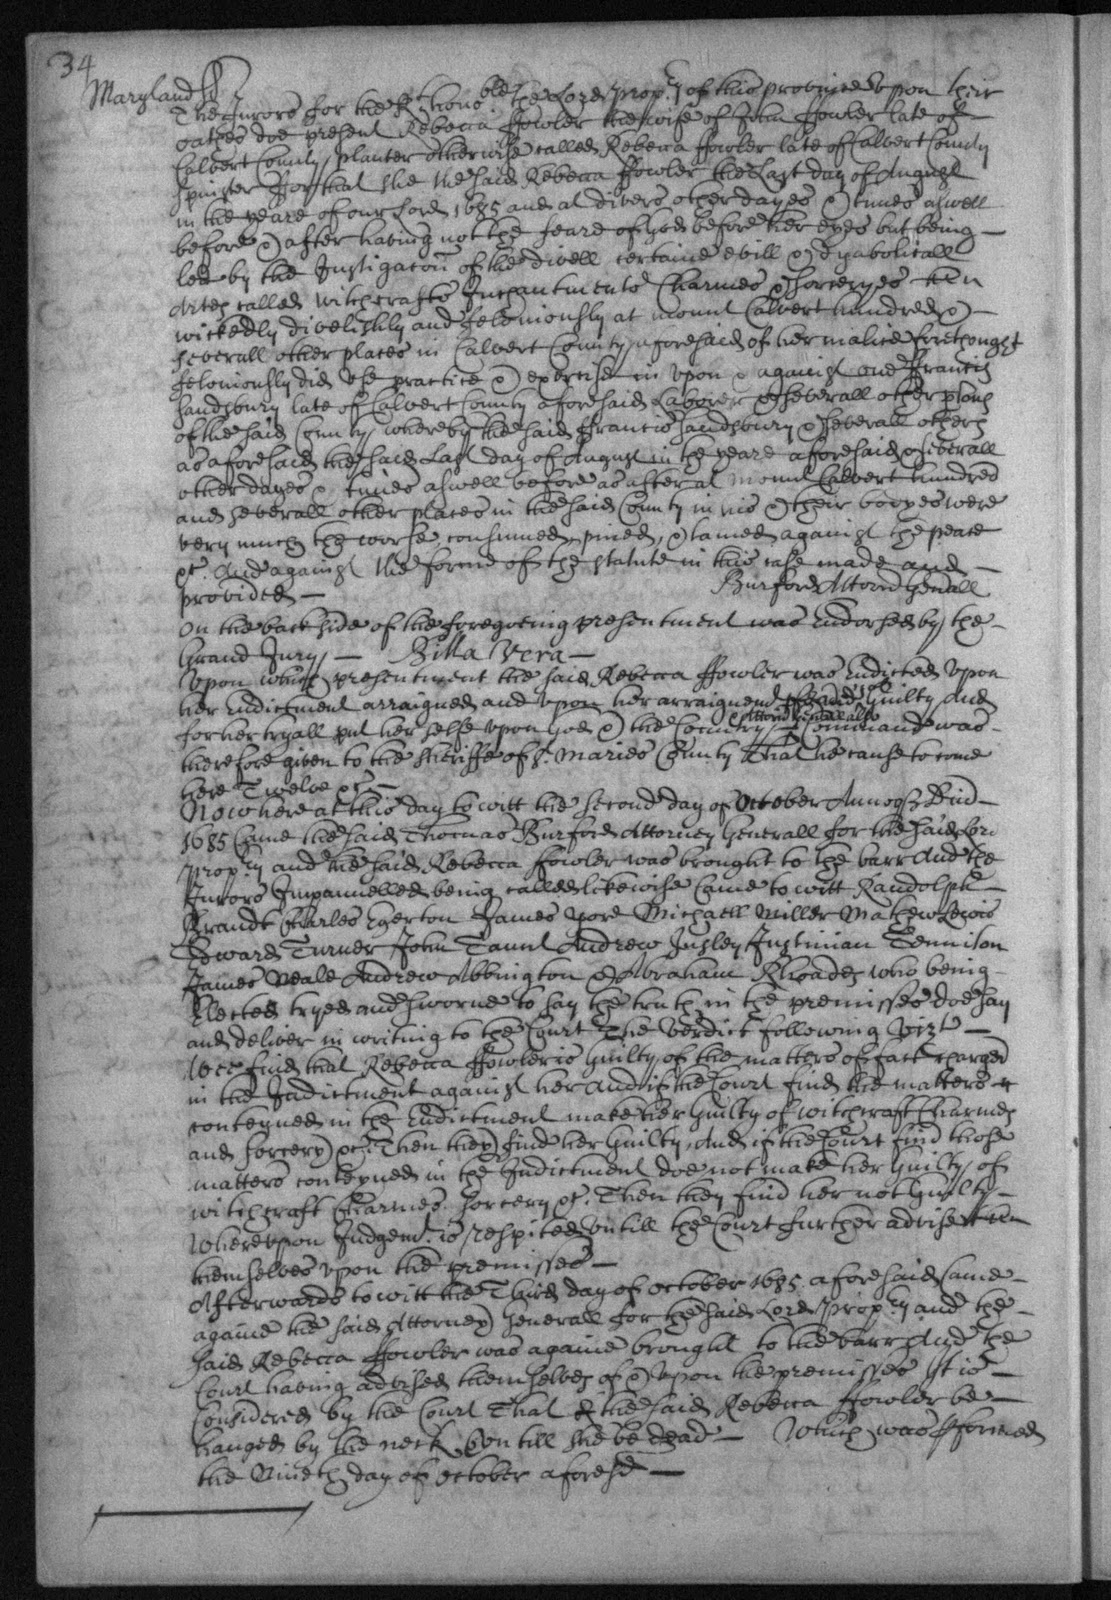 34
Maryland ss
The Jurors for the Rt honoble the Lord Propry of this province upon their
oathes doe present Rebecca ffowler the wife of John ffowler late of
Calvert County planter otherwise called Rebecca ffowler late of Calvert County
Spinster ffor that she the said Rebecca ffowler the Last day of August
in the yeare of our Lord 1685 and at divers other dayes & times aswell
before & after having not the feare of God before her eyes but being
led by the Instigacon of the divell certaine evill & dyabolicall
Artes called witchcrafts Inchantments Charmes & Sorceryes then
wickedly divelishly and feloniously at mount Calvert hundred &
severall other places in Calvert County aforesaid of her malice forethought
feloniously did use practice & exercise in upon & against one Francis
Sandsbury late of Calvert County aforesaid Laborer & Severall other psons
of the said County whereby the said ffrancis Sandsbury & Severall others
as aforesaid the said Last day of August in the yeare aforesaid & severall
other dayes & times aswell before as after at mount Calvert hundred
and severall other places in the said County in his & their bodyes were
very much the worse consumed, pined, & lamed against the peace
&c. And against the forme of the statute in this case made and
provided Burford Attorn Genall
On the backside of the foregoeing presentment was Endorsed by the
Grand Jury Billa Vera
Upon which presentment the said Rebecca ffowler was Endicted Upon
her Endictment arraigned and upon her arraignemt pleaded not Guilty And
for her tryall put her selfe upon God & the Country & Attorn Generall also Command was
therefore given to the Sheriffe of St Maries County That he cause to come
here Twelve &c
Now here at this day to witt the second day of October Annoq Dni
1685 Came the said Thomas Burford Attorney Generall for the said Lord
Propry and the said Rebecca fowler was brought to the barr And the
Jurors Impannelled being called likewise Came to witt Randolph
Brandt Charles Egerton James yore Michaell Miller Mathew Lewis
Edward Turner John Taunt Andrew Insley Justinian Tennison
James Neale Andrew Abbington & Abraham Rhoades who being
Elected tryed and sworne to say the truth in the premisses doe say
and deliver in writing to the Court The Verdict following Vizt
Wee find that Rebecca ffowler is Guilty of the matters of fact charged
in the Indictment against her And if the Court find the matters
conteyned in the Endictment make her Guilty of witchcraft Charmes
and sorcery &c Then they find her Guilty, And if the Court find those
matters conteyned in the Indictment doe not make her Guilty of
witchcraft Charmes Sorcery &c. Then they find her not Guilty
Whereupon Judgemt is respited Untill the Court further advise
themselves upon the premisses
Afterwards to witt the Third day of October 1685 aforesaid Came
againe the said Attorney Generall for the said Lord Propry and the
said Rebecca ffowler was againe brought to the barr And the
Court having advised themselves of & Upon the premisses It is
Considered by the Court That the said Rebecca ffowler be
hanged by the neck Untill she be dead Which was pformed
the Nineth day of October aforesd